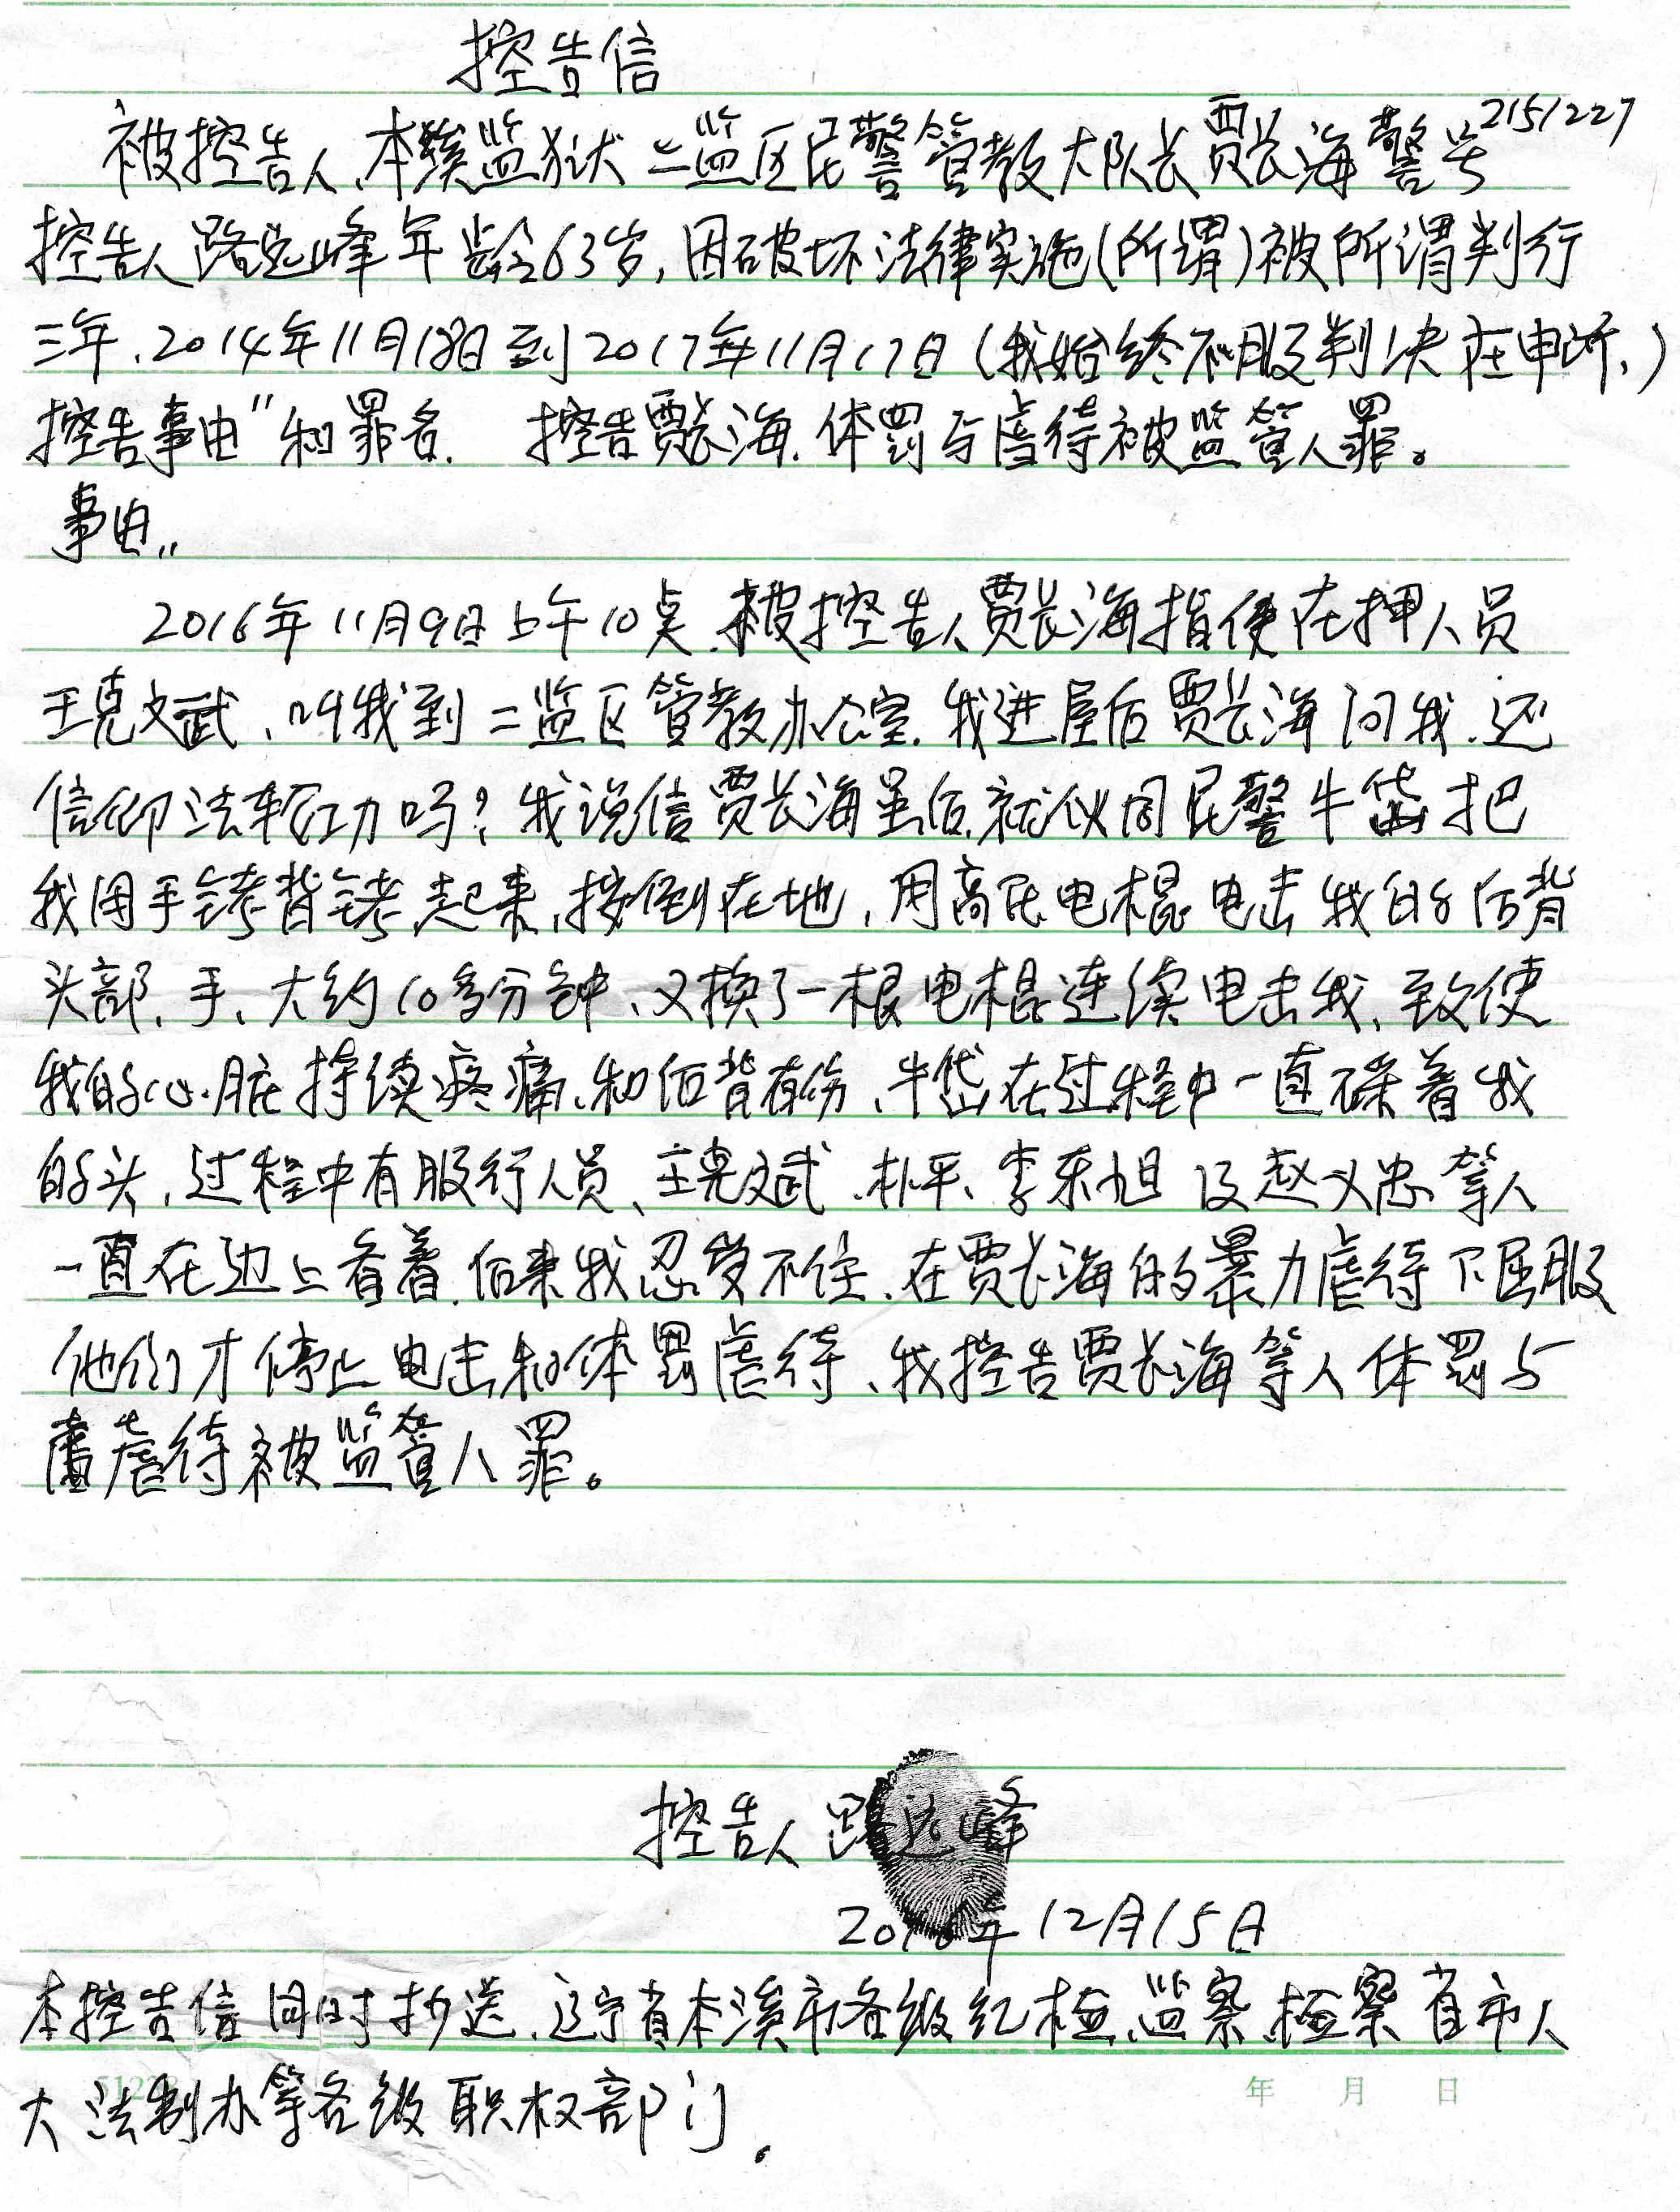 控告信
被控告人、本溪监狱二监区民警管教大队长贾长海警号2151227
控告人路远峰年龄63岁,因破坏法律实施(所谓)被所谓判行
三年.2014年11月18日到2017年11月17日(我始终不服判决在申诉.)
控告事由"和罪名. 控告贾长海.体罚与虐待被监管人罪。
事由,,
2016年11月9日上午10点.被控告人贾长海指使在押人员
王克文武、叫我到二监区管教办公室.我进屋后贾长海问我.还
信仰法轮功吗?我说信贾长海 就伙同民警牛岱把
我用手铐背铐起来,按倒在地,用高压电棍电击我的后背
头部、手、大约10多分钟、又换了一根电棍连续电击我、致使
我的心脏持续疼痛、和后背有伤、牛岱在过程中一直踩着我
的头,过程中有服行人员、王克文武、朴平、李东旭及赵义忠等人
一直在边上看着.后来我忍受不住、在贾长海的暴力虐待下屈服
他们才停止电击和体罚虐待、我控告贾长海等人体罚与
虐待被监管人罪。
控告人 路远峰
2016年12月15日
本控告信同时抄送、辽宁省本溪市各级纪检、监察、检察省市人
年 月 日
大法制办等各级职权部门.